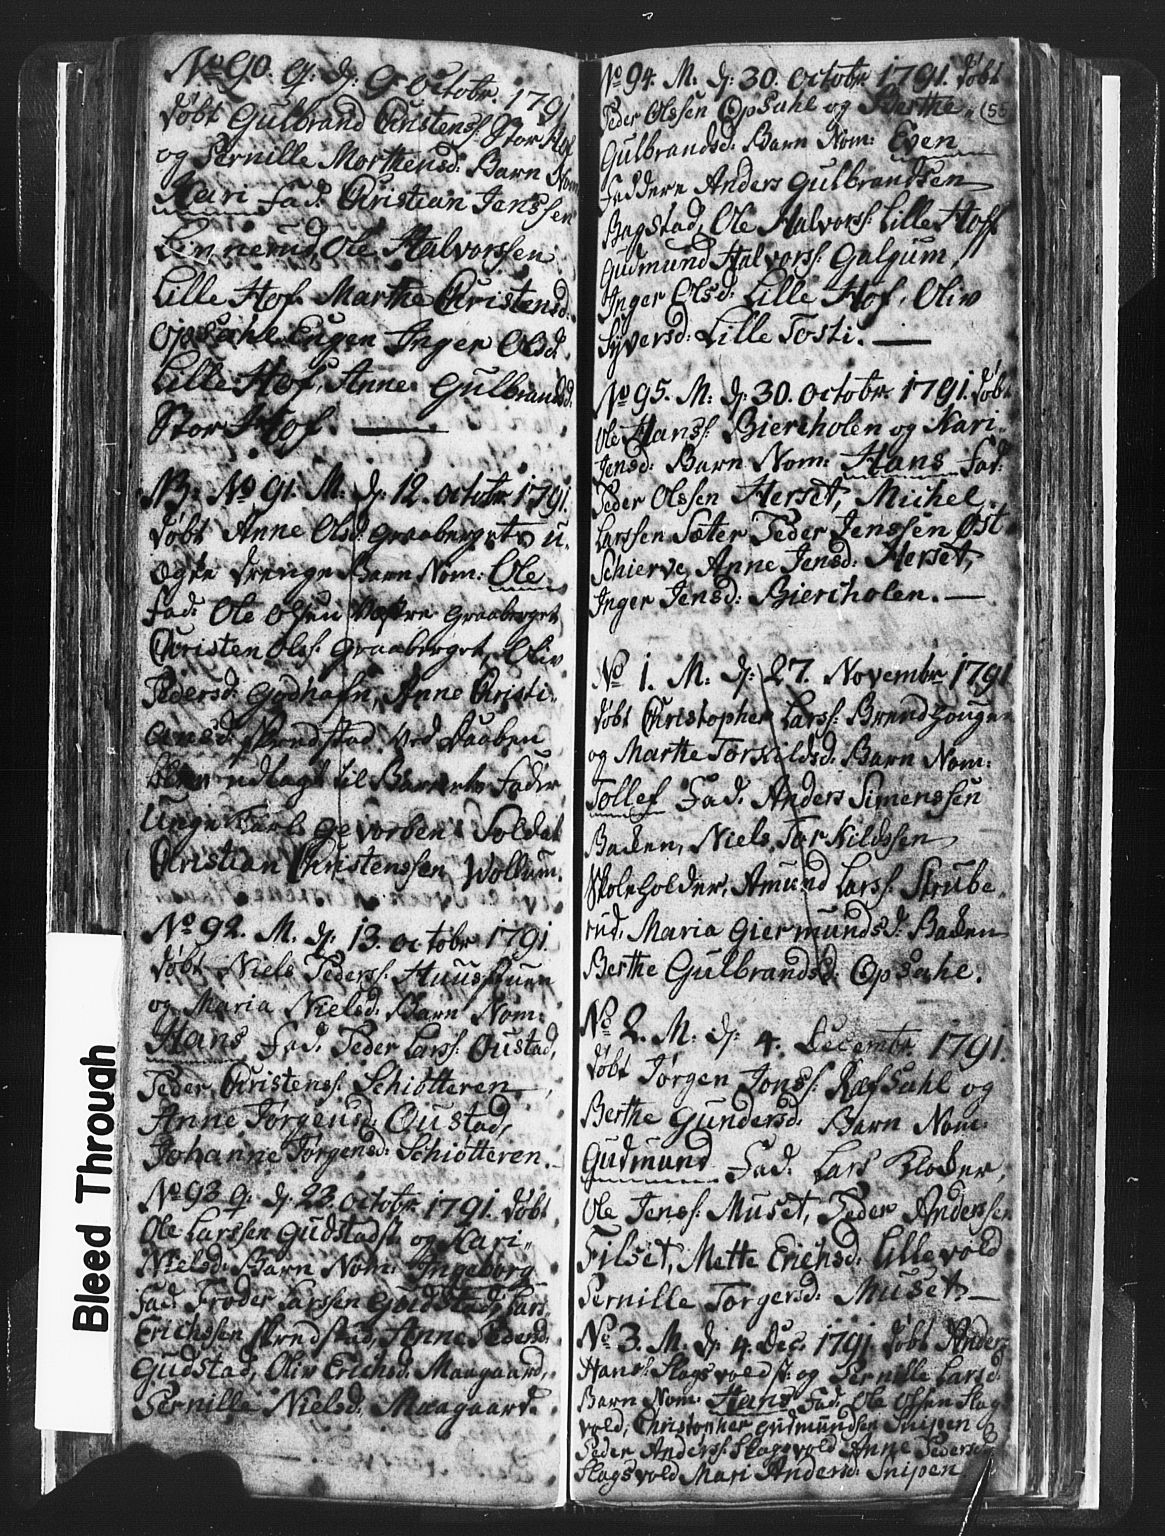 No 90. Qv. d: 9 Octobr. 1791
døbt Gulbrand Christens: Stor Hof
og Pernille Morthensd: Barn Nom
Kari Fad: Christian Jenssen
Linnerud, Ole Halvorssen
Lille Hof. Marthe Christensd.
Opsahl Eugen Inger Olsd.
Lille Hof, Anne Gulbrandsd.
Stor Hof
NB. No 91. M: d: 12. octobr 1791.
døbt Anne Olsd: Graaberget u.
ægte drenge Barn Nom: Ole
Fad: Ole Olsen Østre Graaberget
Christen Olss: Graaberget, Oliv
Pedersd: Godhafn, Anne Christi-
ansd: Skredstad Ved Daaben
blev udlagt til Barnets Fader
Unge Karl gevorben Soldat
Christian Christenssen Wollum.
No 92. M. d: 13. octobr 1791.
døbt Niels Peders: Huusstuen
og Maria Nielsd: Barn Nom:
Hans Fad. Peder Larss: Oustad,
Peder Christens: Schiøtteren
Anne Jørgensd: Oustad,
Johanne Jørgensd: Schiøtteren.
No 93 Q. d: 23. Octobr. 1791. døbt
Ole Larssen Gudstadst. og Kari
Nielsd: Barn Nom: Ingeborg
Fad Frøder Larssen Gudstad, Lars
Erichssen Skredstad, Anne Pedersd:
Gudstad, Oliv Erichsd: Maagaard,
Pernille Nielsd. Maagaard.
No 94. M. d: 30. Octobr 1791. døbt
Peder Olssen Opsahl og Berthe
55
Gulbrandsd: Barn Nom: Even
Faddere Anders Gulbrandsen
Bagstad, Ole Halvors: Lille Hoff
Gudmund Halvors: Galgum,
Inger Olsd: Lille Hof, Oliv
Syversd: Lille Tosti.
No 95. M: d: 30. Octobr. 1791. døbt
Ole Hans: Biercholen og Kari
Jensd: Barn Nom: Hans Fad:
Peder Olssen Herset, Michel
Larssen Sæter Peder Jenssen Øst
Schierve, Anne Jensd: Herset,
Inger Jensd: Biercholen.
No 1. M. d: 27. Novembr 1791
døbt Christopher Larss: Brendhougen
og Marthe Torkildsd: Barn Nom:
Tollef Fad. Anders Simenssen
Backen, Niels Torkildssen
Skoleholder, Amund Larss: Strube-
rud, Maria Giermundsd: Backen
Berthe Gulbrandsd: Opsahl.
No 2. M. d: 4. Decembr. 1791.
døbt Jørgen Jonss: Ræfsahl og
Berthe Gundersd. Barn Nom:
Gudmund Fad. Lars Klocker,
Ole Jenss: Muset, Peder Anderssen
Filset, Mette Erichsd: Lillevold
Pernille Torgersd: Muset
No 3. M. d: 4. Dec. 1791. døbt Anders
Hans: Skogsvoldst: og Pernille Larsd:
Barn Nom: Hans Fad: Ole Olssen Skog
vold, Christopher Gudmundsen Snipen
Peder Anderss: Skogsvold Anne Pedersd:
Skogsvold Mari Andersd: Snipen
Bleed Through